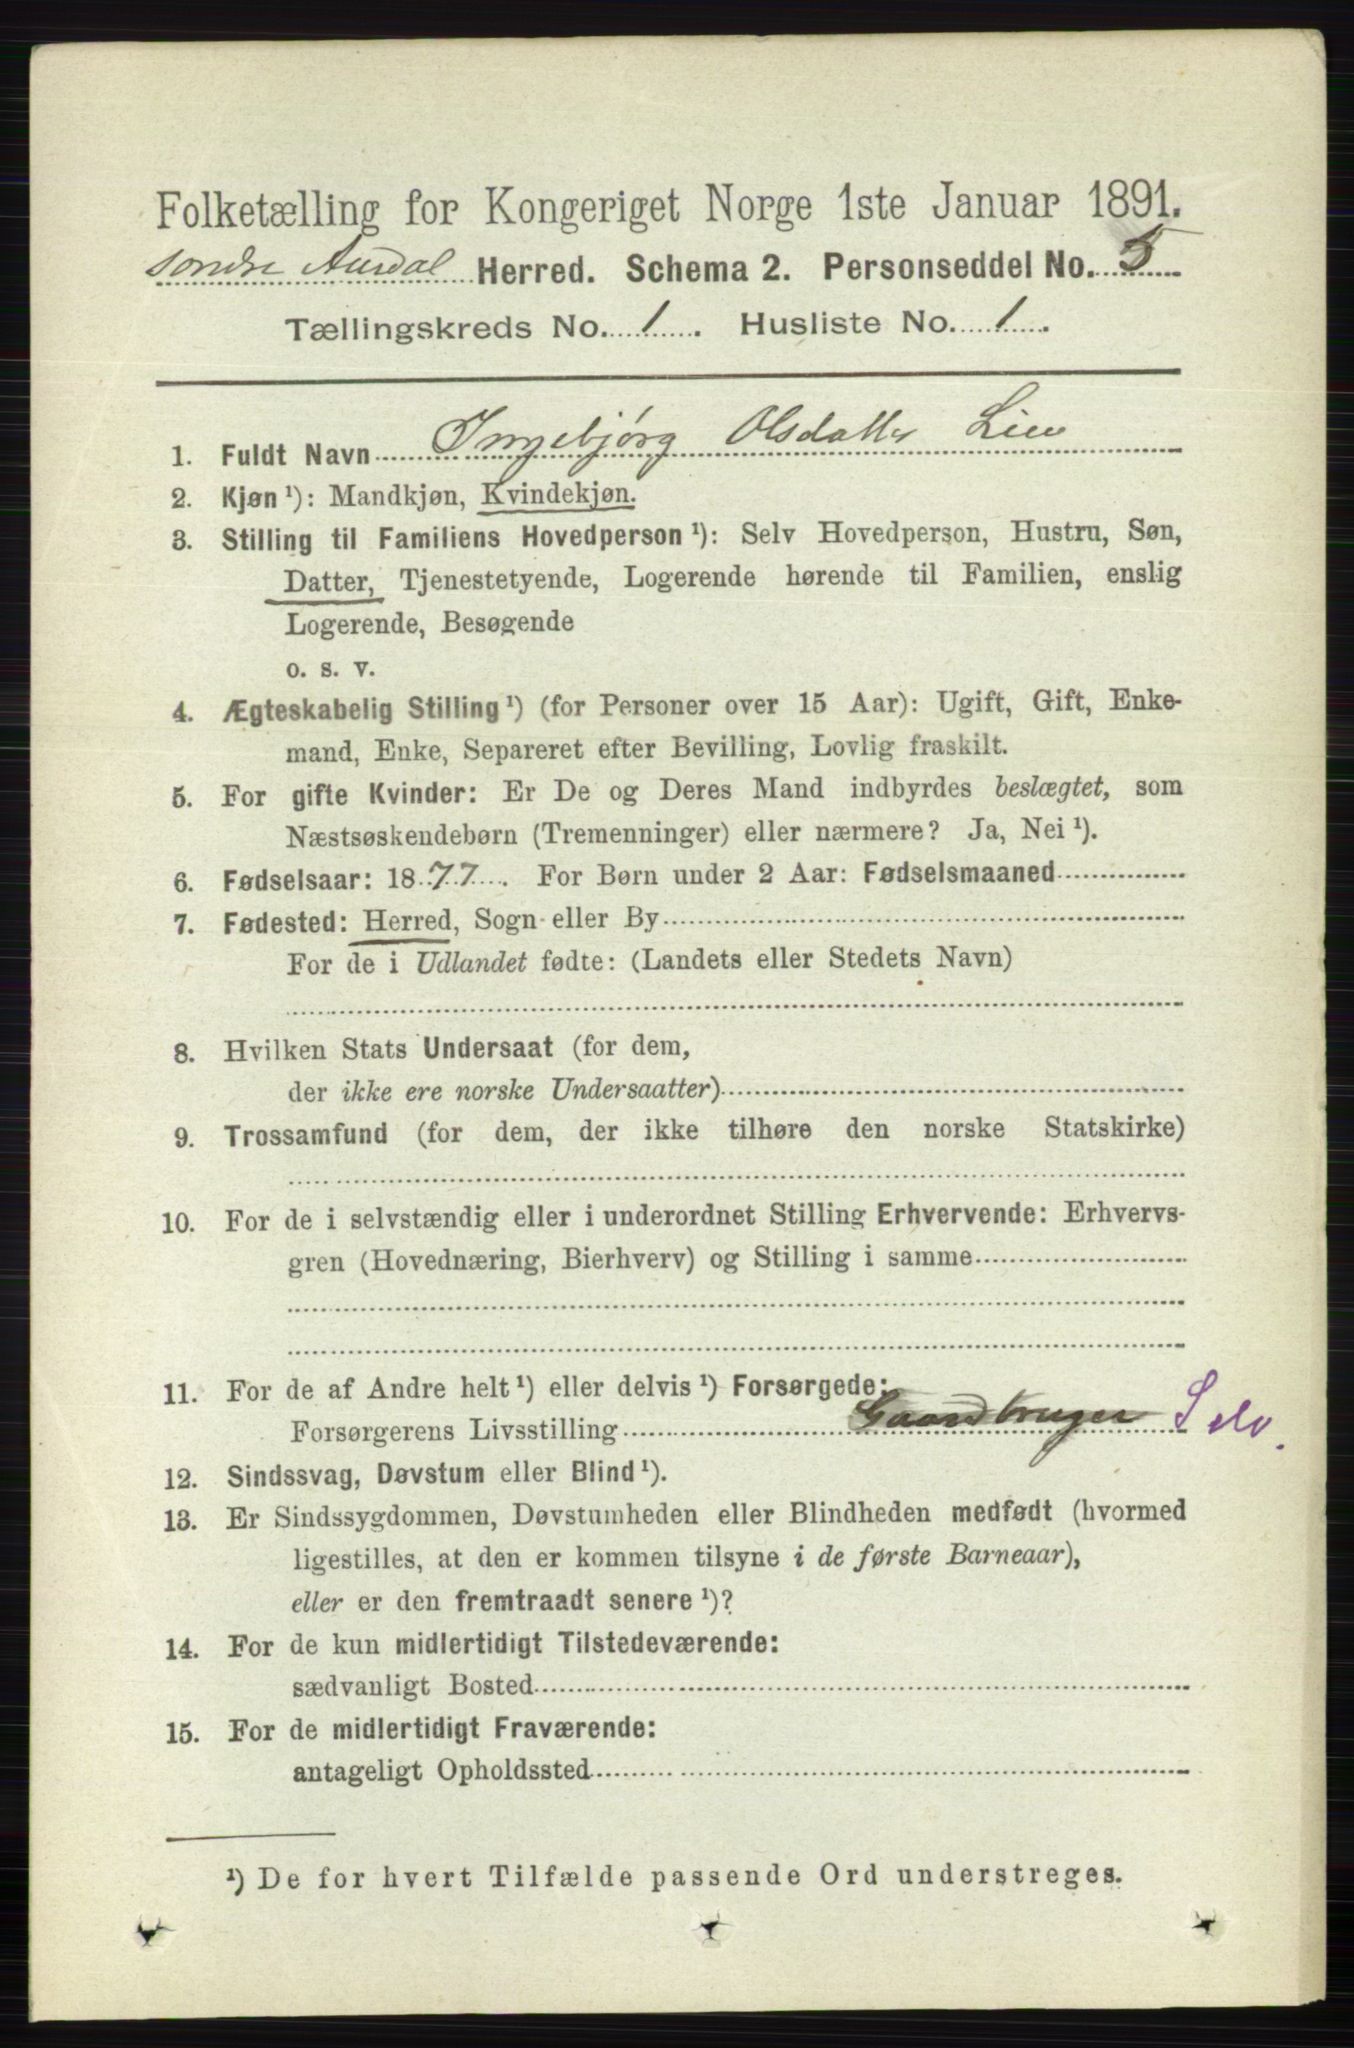 Folketælling for Kongeriget Norge 1ste Januar 1891.
søndre Aurdal Herred. Schema 2. Personseddel No. 5
Tællingskreds No. 1. Husliste No. 1.
1. Fuldt Navn Ingebjørg Olsdatter Lien
2. Kjøn¹): Mandkjøn, Kvindekjøn.
3. Stilling til Familiens Hovedperson¹): Selv Hovedperson, Hustru, Søn,
Datter, Tjenestetyende, Logerende hørende til Familien, enslig
Logerende, Besøgende
o. s. v.
4. Ægteskabelig Stilling¹) (for Personer over 15 Aar): Ugift, Gift, Enke-
mand, Enke, Separeret efter Bevilling, Lovlig fraskilt.
5. For gifte Kvinder: Er De og Deres Mand indbyrdes beslægtet, som
Næstsøskendebørn (Tremenninger) eller nærmere? Ja, Nei¹).
6. Fødselsaar: 1877. For Børn under 2 Aar: Fødselsmaaned
7. Fødested: Herred, Sogn eller By
For de i Udlandet fødte: (Landets eller Stedets Navn)
8. Hvilken Stats Undersaat (for dem,
der ikke ere norske Undersaatter)
9. Trossamfund (for dem, der ikke tilhøre den norske Statskirke)
10. For de i selvstændig eller i underordnet Stilling Erhvervende: Erhvervs-
gren (Hovednæring, Bierhverv) og Stilling i samme
11. For de af Andre helt¹) eller delvis¹) Forsørgede:
Forsørgerens Livsstilling Gaardbruger Selv.
12. Sindssvag, Døvstum eller Blind¹).
13. Er Sindssygdommen, Døvstumheden eller Blindheden medfødt (hvormed
ligestilles, at den er kommen tilsyne i de første Barneaar),
eller er den fremtraadt senere¹)?
14. For de kun midlertidigt Tilstedeværende:
sædvanligt Bosted
15. For de midlertidigt Fraværende:
antageligt Opholdssted
¹) De for hvert Tilfælde passende Ord understreges.